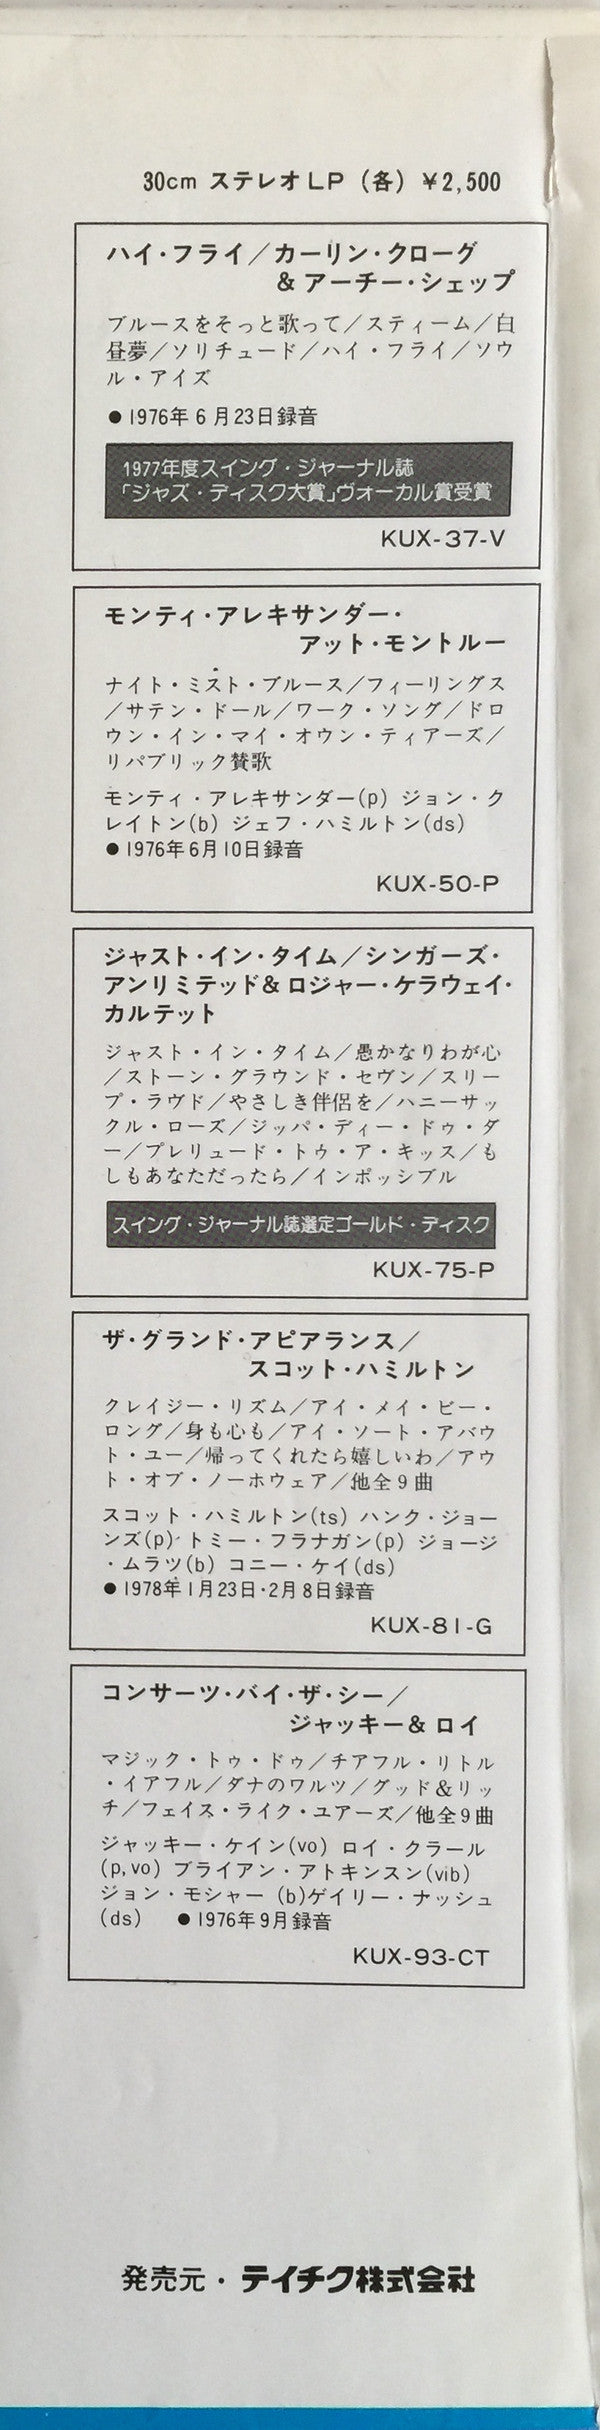 30cm ステレオLP (各) ¥2,500
ハイ・フライ／カーリン・クローグ
&アーチー・シェップ
ブルースをそっと歌って／スティーム／白
昼夢／ソリチュード／ハイ・フライ／ソウ
ル・アイズ
●1976年6月23日録音
1977年度スイング・ジャーナル誌
「ジャズ・ディスク大賞」ヴォーカル賞受賞
KUX-37-V
モンティ・アレキサンダー・
アット・モントルー
ナイト・ミスト・ブルース／フィーリングス
／サテン・ドール／ワーク・ソング／ドロ
ウン・イン・マイ・オウン・ティアーズ／
リパブリック賛歌
モンティ・アレキサンダー(p) ジョン・ク
レイトン(b) ジェフ・ハミルトン(ds)
●1976年6月10日録音
KUX-50-P
ジャスト・イン・タイム／シンガーズ・
アンリミテッド&ロジャー・ケラウェイ・
カルテット
ジャスト・イン・タイム／愚かなりわが心
／ストーン・グラウンド・セヴン／スリー
プ・ラヴド／やさしき伴侶を／ハニーサッ
クル・ローズ／ジッパ・ディー・ドゥ・ダ
ー／プレリュード・トゥ・ア・キッス／も
しもあなただったら／インポッシブル
スイング・ジャーナル誌選定ゴールド・ディスク
KUX-75-P
ザ・グランド・アピアランス／
スコット・ハミルトン
クレイジー・リズム／アイ・メイ・ビー・
ロング／身も心も／アイ・ソート・アバウ
ト・ユー／帰ってくれたら嬉しいわ／アウ
ト・オブ・ノーホウェア／他全9曲
スコット・ハミルトン(ts) ハンク・ジョー
ンズ(p)・トミー・フラナガン(p) ジョージ
・ムラツ(b) コニー・ケイ(ds)
●1978年1月23日・2月8日録音
KUX-81-G
コンサーツ・バイ・ザ・シー／
ジャッキー&ロイ
マジック・トゥ・ドゥ／チアフル・リトル
・イアフル／ダナのワルツ／グッド&リッ
チ／フェイス・ライク・ユアーズ／他全9曲
ジャッキー・ケイン(vo) ロイ・クラール
(p,vo) ブライアン・アトキンスン(vib)
ジョン・モシャー (b)ゲイリー・ナッシュ
(ds) ●1976年9月録音
KUX-93-CT
発売元・テイチク株式会社